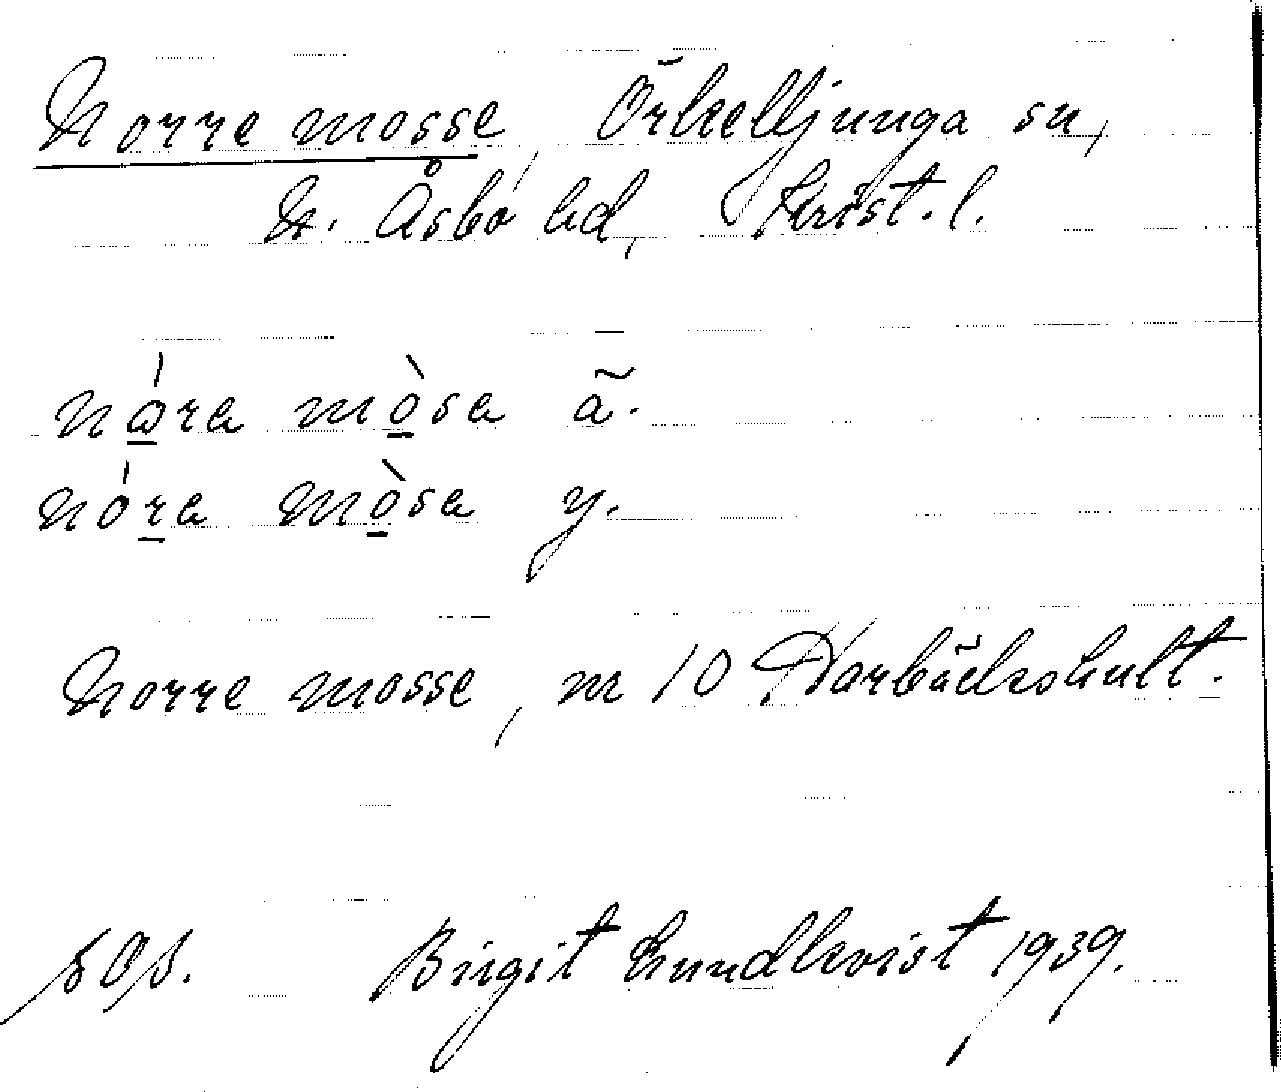 Norre mosse, Örkelljunga sn,
N. Åsbo hd, Krist. l.
nåra mòsa ä.
nóra mòsa y.
Norre mosse, nr 10 Harbäckshult.
sOs. Birgit Lundkvist 1939.